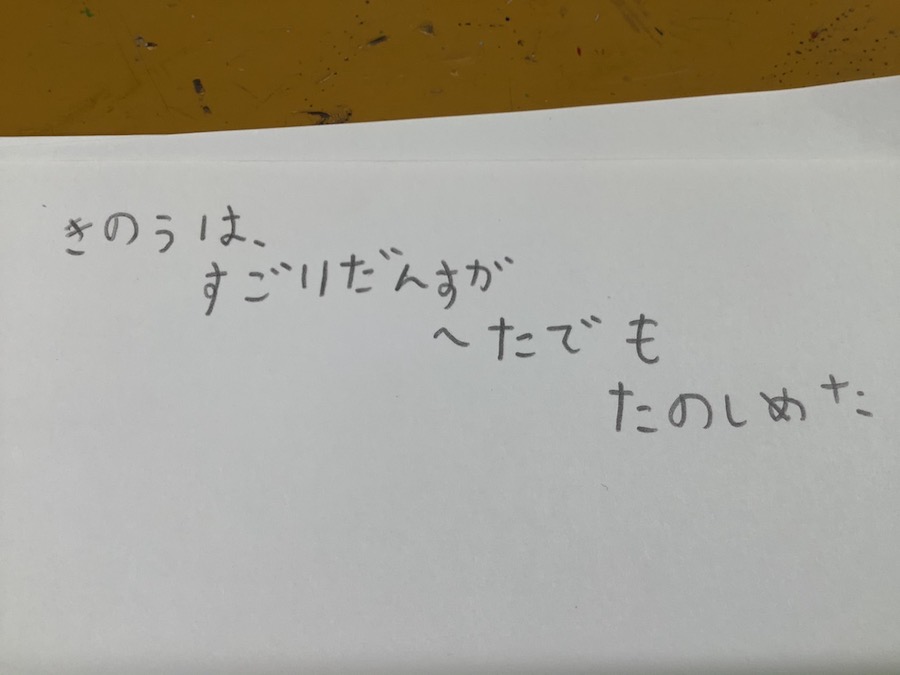 きのうは、
すごいだんすが
へたでも
たのしめた